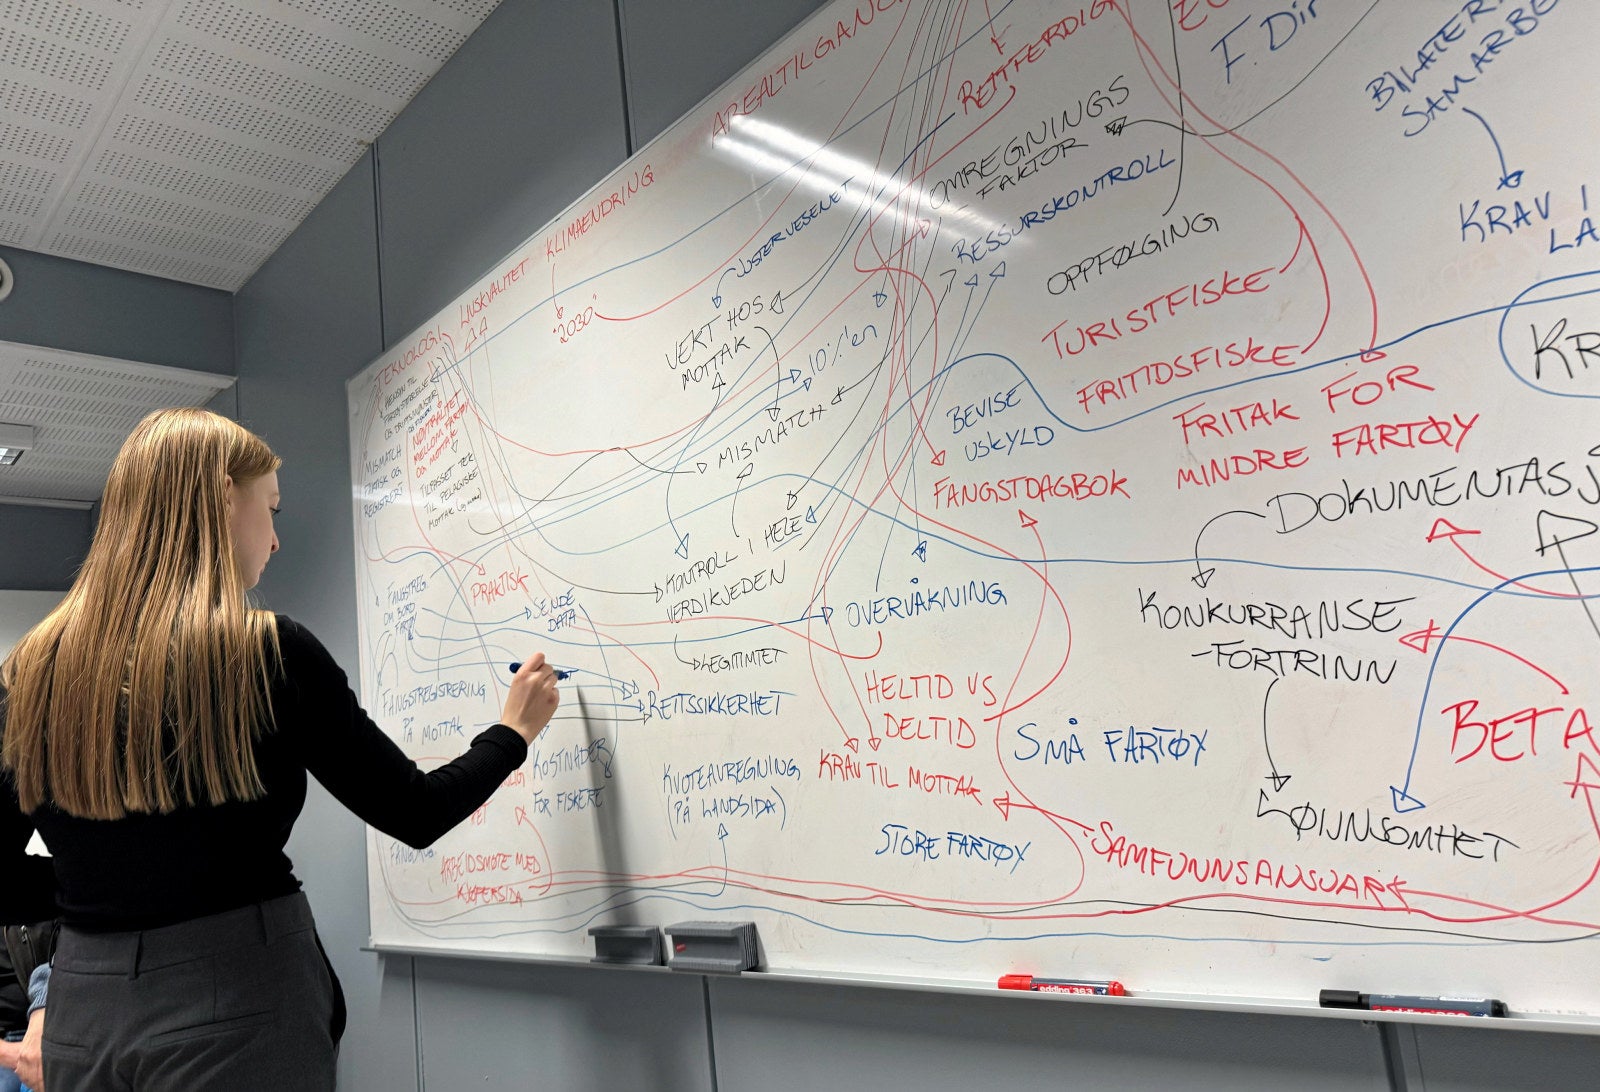 AREALTILGANG
RETTFERDIG
F. DIR
BILATER
SAMARBE
KLIMAENDRING
"2030"
LIVSKVALITET
TEKNOLOGI
OMREGNINGS
FAKTOR
JUSTERVESENET
RESSURSKONTROLL
OPPFØLGING
KRAV I
LA
VEKT HOS
MOTTAK
10%'en
TURISTFISKE
FRITIDSFISKE
FRITAK FOR
MINDRE FARTØY
KR
BEVISE
USKYLD
MISMATCH
FANGSTDAGBOK
DOKUMENTASJ
MISMATCH
FAKTISK OG
REGISTRERT
NØYTRALITET
MELLOM FARTØY
OG MOTTAK
TILPASSET TEK
TIL PELAGISKE
MOTTAK
KONTROLL I HELE
VERDIKJEDEN
PRAKTISK
FANGSTREG.
OM BORD
FARTØY
SENDE
DATA
OVERVÅKNING
KONKURRANSE
-FORTRINN
LEGITIMITET
FANGSTREGISTRERING
PÅ MOTTAK
RETTSSIKKERHET
HELTID VS
DELTID
SMÅ FARTØY
BETA
KOSTNADER
FOR FISKERE
KVOTEAVREGNING
(PÅ LANDSIDA)
KRAV TIL MOTTAK
LØNNSOMHET
STORE FARTØY
SAMFUNNSANSVAR
ARBEIDSMØTE MED
KJØPERSIDA
edding 363